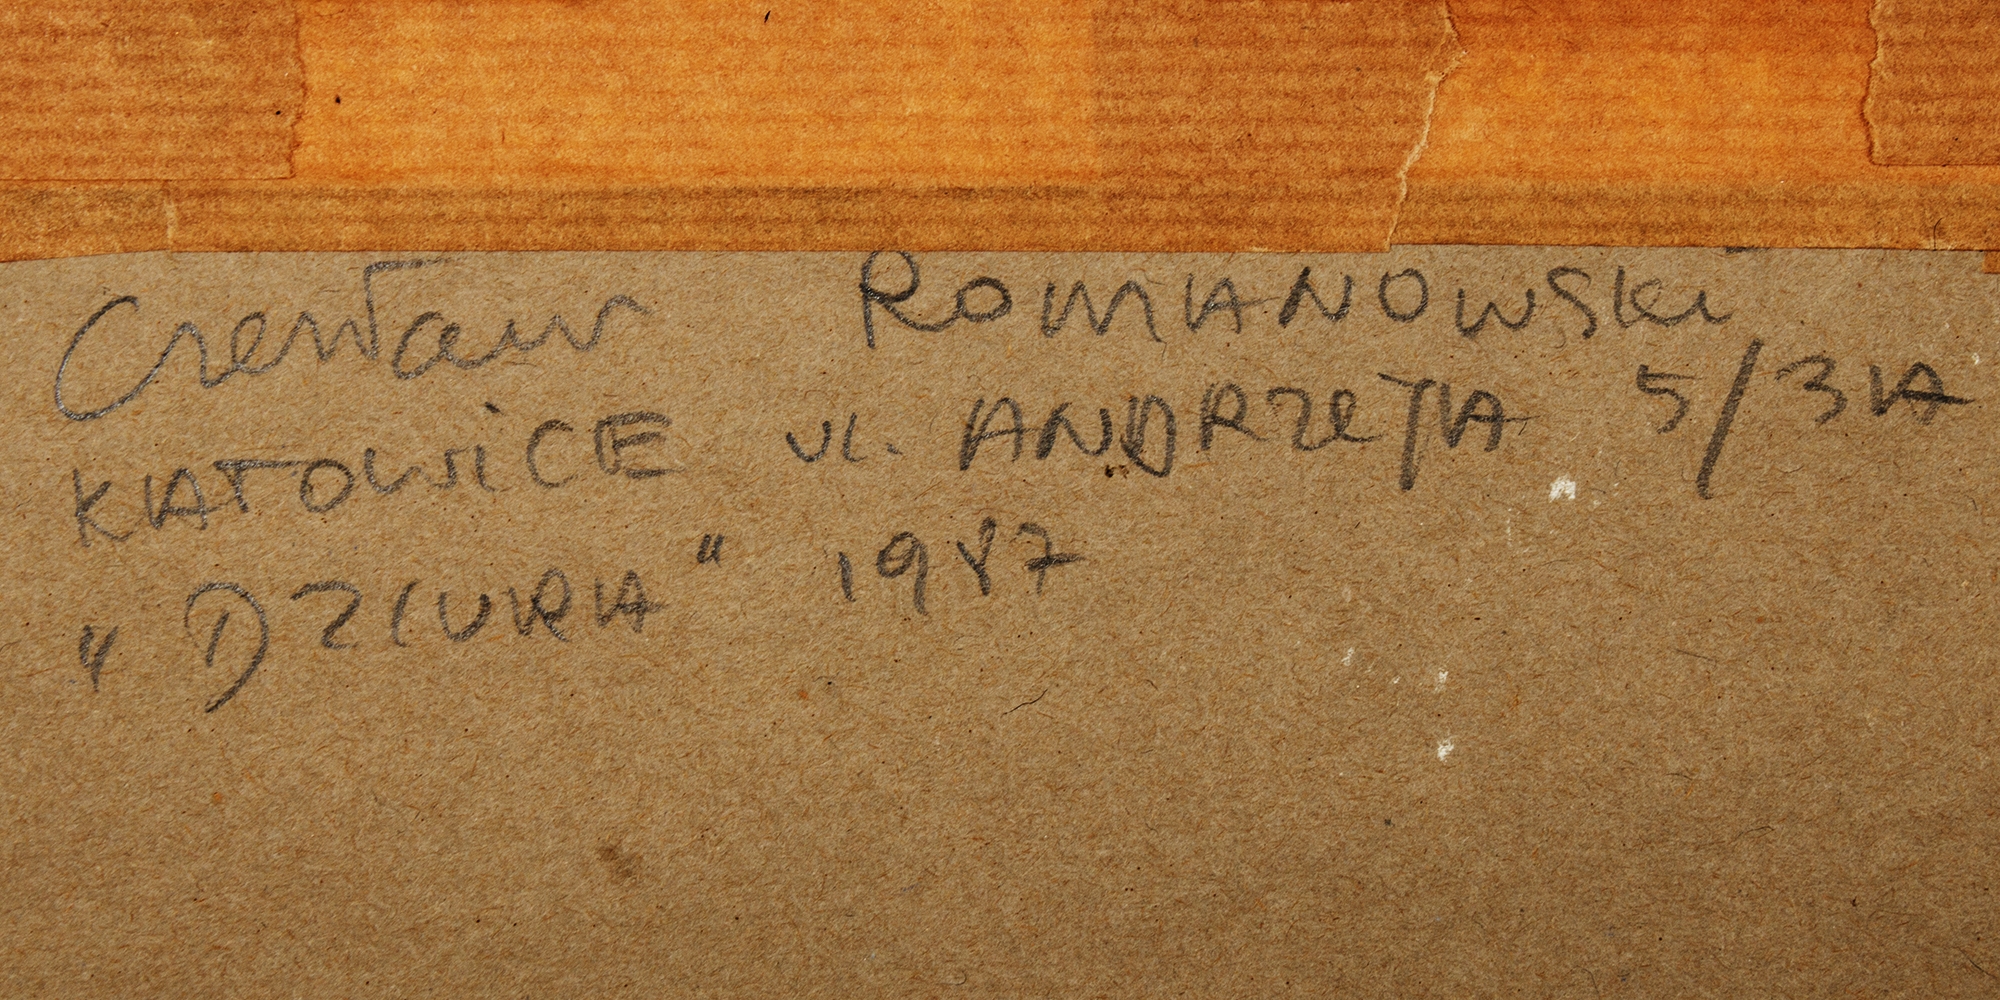 Czesław ROMANOWSKi
KATOWiCE ul. ANDRZEJA 5/3A
"DZIURA" 1987